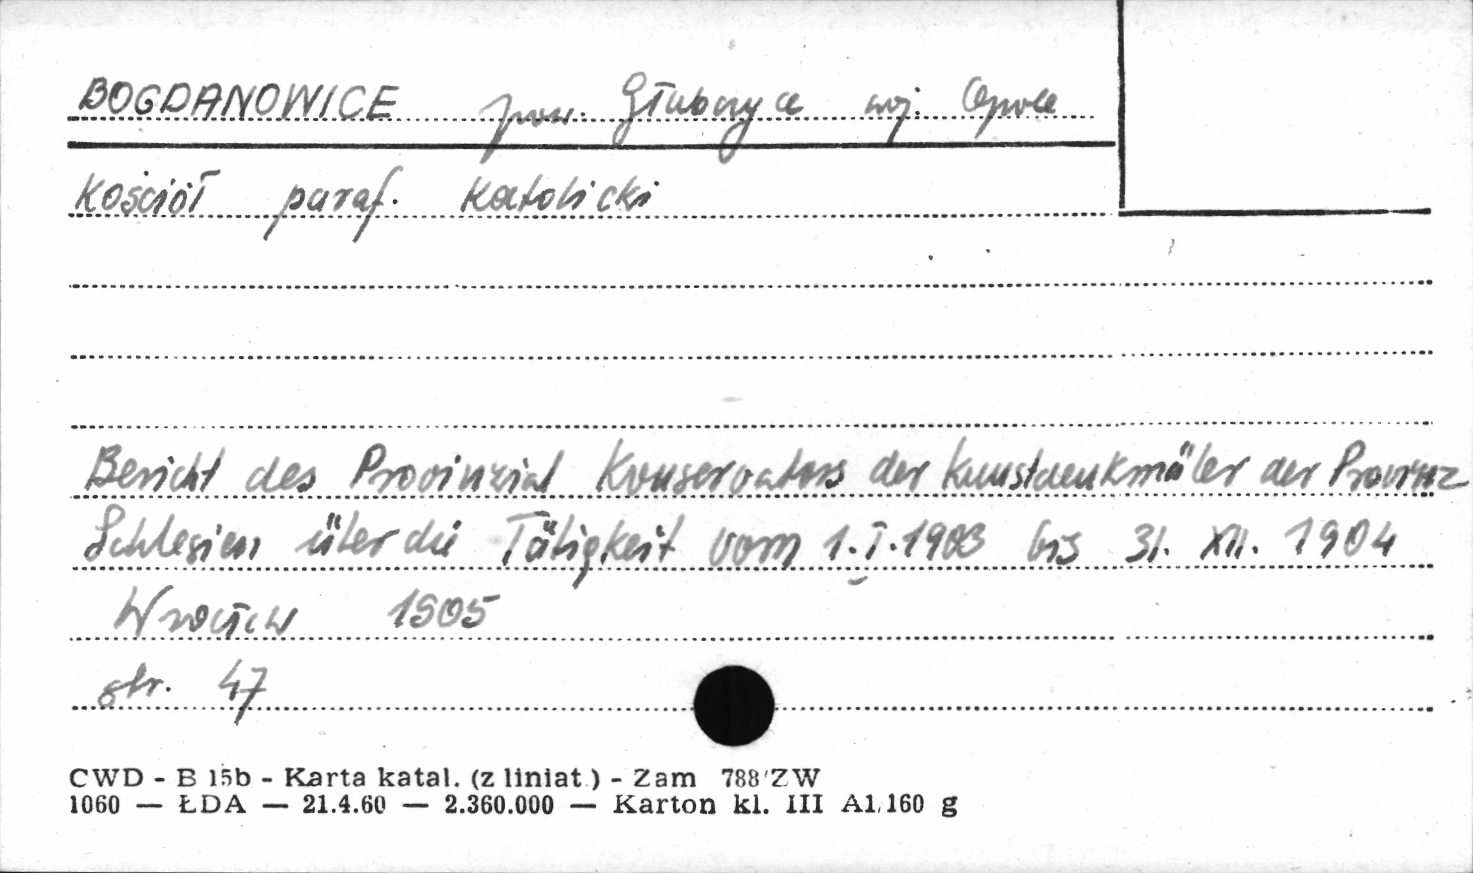 BOGDANOWICE pow. Głubczyce woj. Opole
Kościół paraf. Katolicki
Bericht des Provinzial Konservators der Kunstdenkmäler der Provinz
Schlesien über die Tätigkeit vom 1.I.1903 bis 31. XII. 1904
Wrocław 1905
str. 47
CWD - B 15b - Karta katal. (z liniat.) - Zam 788/ZW
1060 — ŁDA — 21.4.60 — 2.360.000 — Karton kl. III A1/160 g